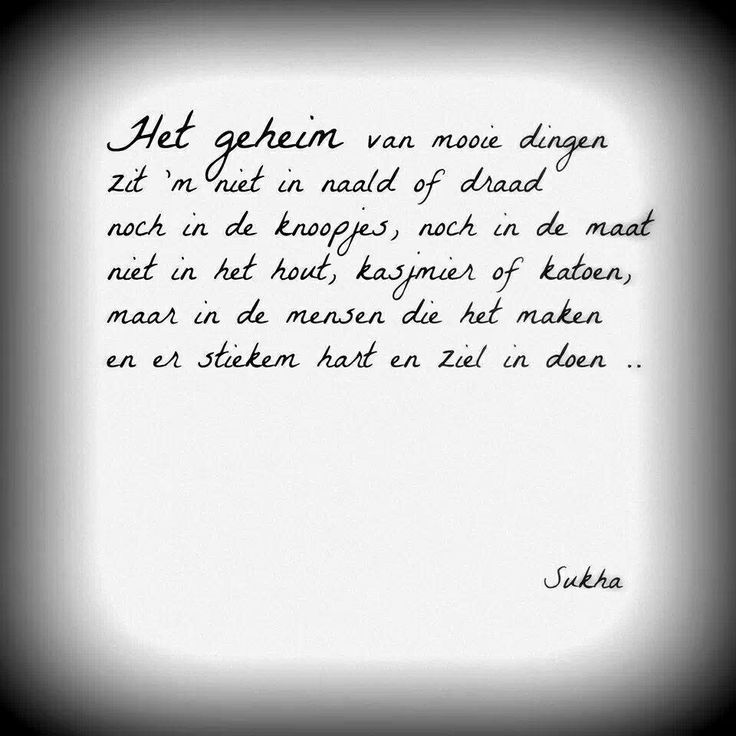 Het geheim van mooie dingen
zit 'm niet in naald of draad
noch in de knoopjes, noch in de maat
niet in het hout, kasjmier of katoen,
maar in de mensen die het maken
en er stiekem hart en ziel in doen ..
Sukha